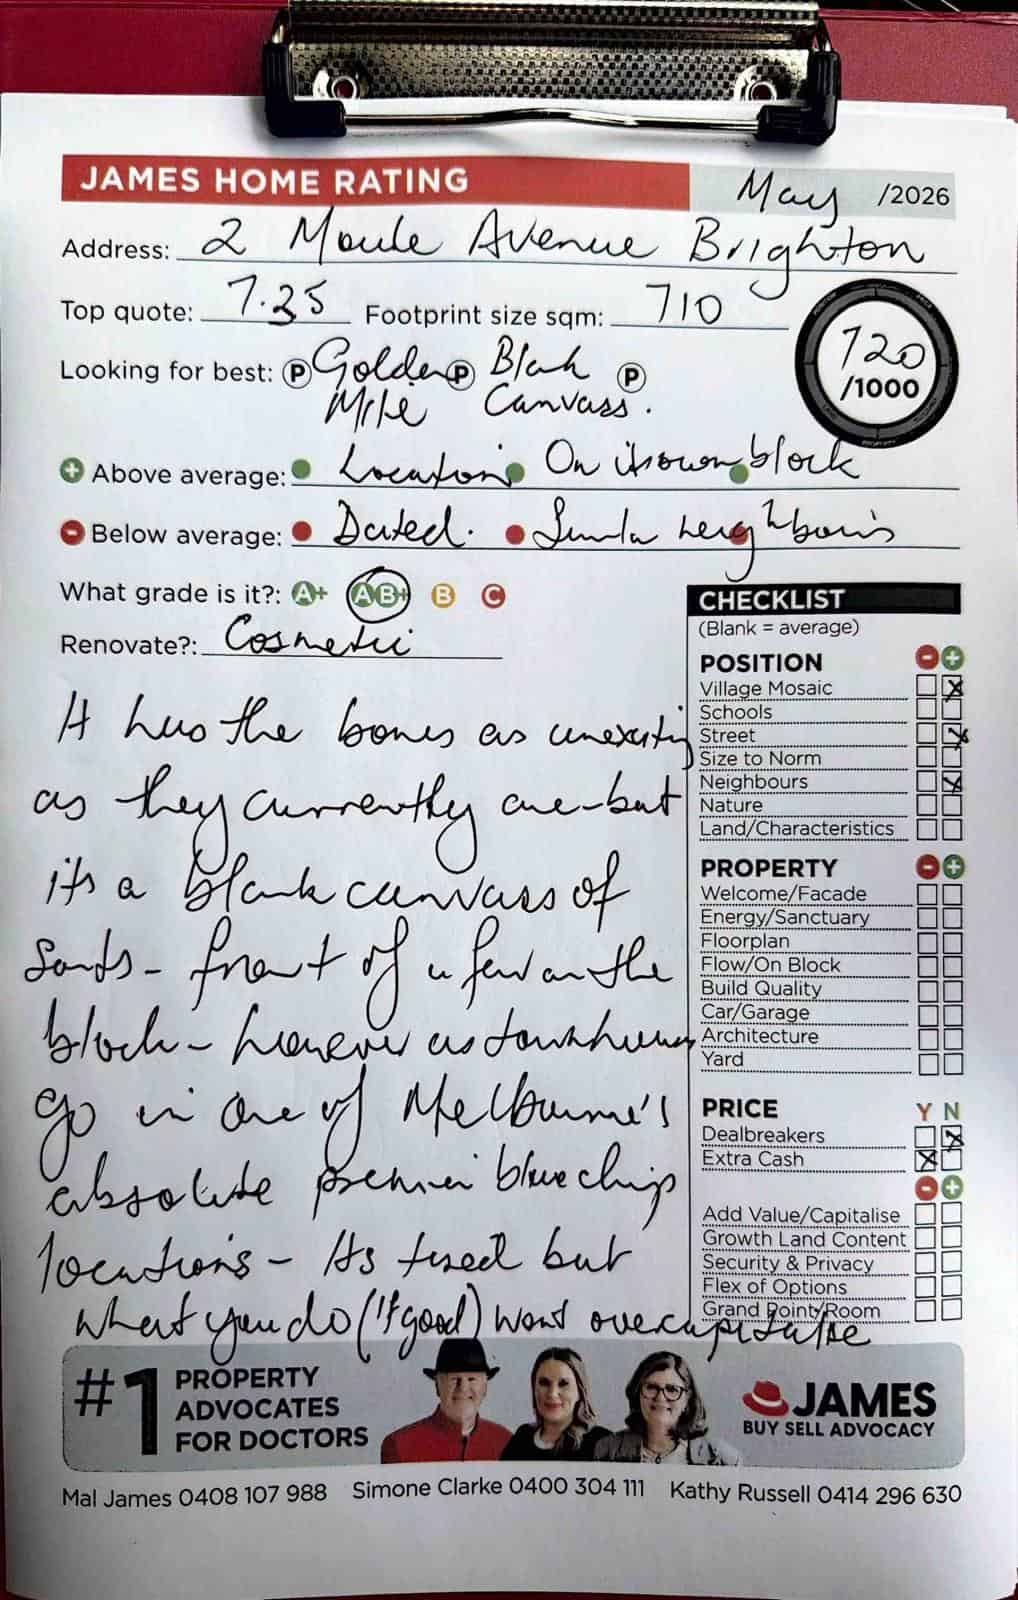 JAMES HOME RATING May /2026
Address: 2 Moule Avenue Brighton
Top quote: 7.35 Footprint size sqm: 710
720
/1000
Looking for best: P Golden P Blank P
Mile Canvass.
+ Above average: Location On its own block
- Below average: Dated. neighbours
What grade is it?: A+ AB+ B C
Renovate?: Cosmetic
It has the bones as unexciting
as they currently are - but
its a blank canvass of
sorts - front of a few on the
block - however as townhouses
go in one of Melbourne's
absolute premier blue chip
locations - Its tired but
what you do (if good) wont overcapitalise
CHECKLIST
(Blank = average)
POSITION - +
Village Mosaic X
Schools
Street X
Size to Norm
Neighbours X
Nature
Land/Characteristics
PROPERTY - +
Welcome/Facade
Energy/Sanctuary
Floorplan
Flow/On Block
Build Quality
Car/Garage
Architecture
Yard
PRICE Y N
Dealbreakers X
Extra Cash X
- +
Add Value/Capitalise
Growth Land Content
Security & Privacy
Flex of Options
Grand Point/Room
#1 PROPERTY
ADVOCATES
FOR DOCTORS
JAMES
BUY SELL ADVOCACY
Mal James 0408 107 988 Simone Clarke 0400 304 111 Kathy Russell 0414 296 630